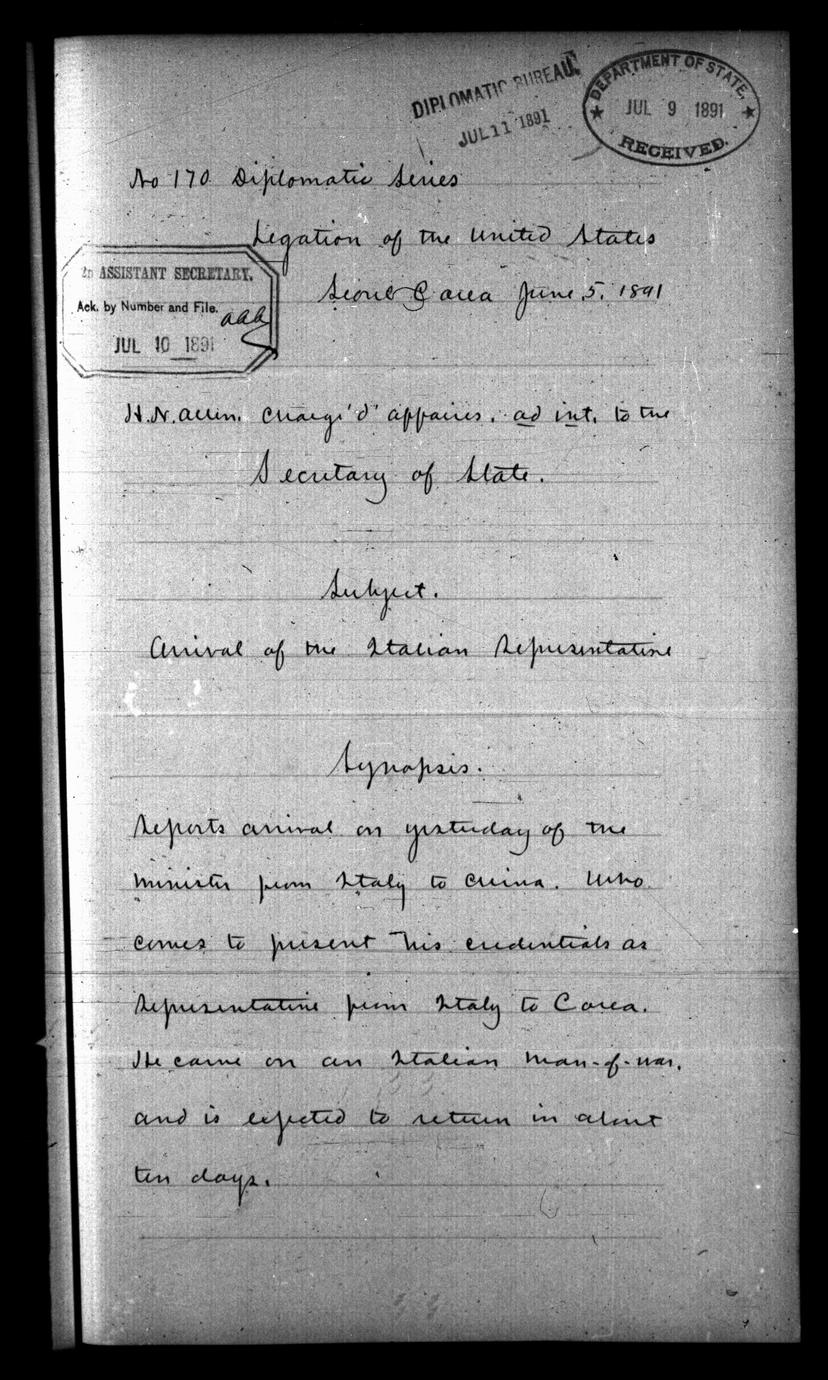 DIPLOMATIC BUREAU.
JUL 11 1891
DEPARTMENT OF STATE.
JUL 9 1891
RECEIVED.
No 170 Diplomatic Series
Legation of the United States
2D ASSISTANT SECRETARY.
Ack. by Number and File.
aaa
JUL 10 1891
Seoul Corea June 5, 1891
H. N. Allen. Chargé d' affaires. ad int. to the
Secretary of State.
Subject.
Arrival of the Italian Representative
Synopsis.
Reports arrival on yesterday of the
Minister from Italy to China. Who
comes to present his credentials as
Representative from Italy to Corea.
He came on an Italian man-of-war.
and is expected to return in about
ten days.